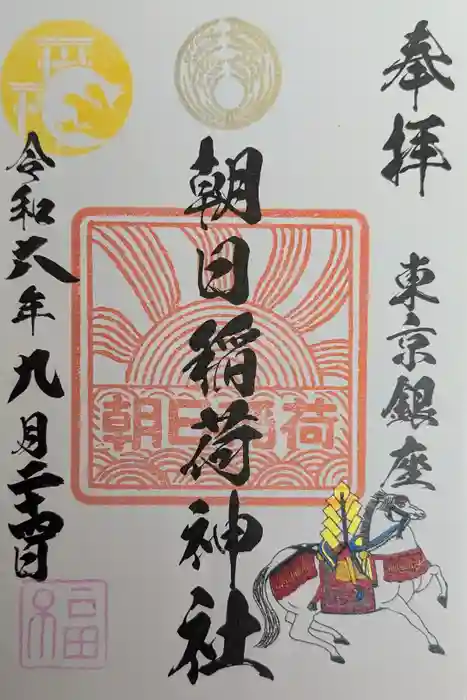 奉拝
東京銀座
朝日稲荷神社
朝日稲荷
令和六年九月二十四日
福